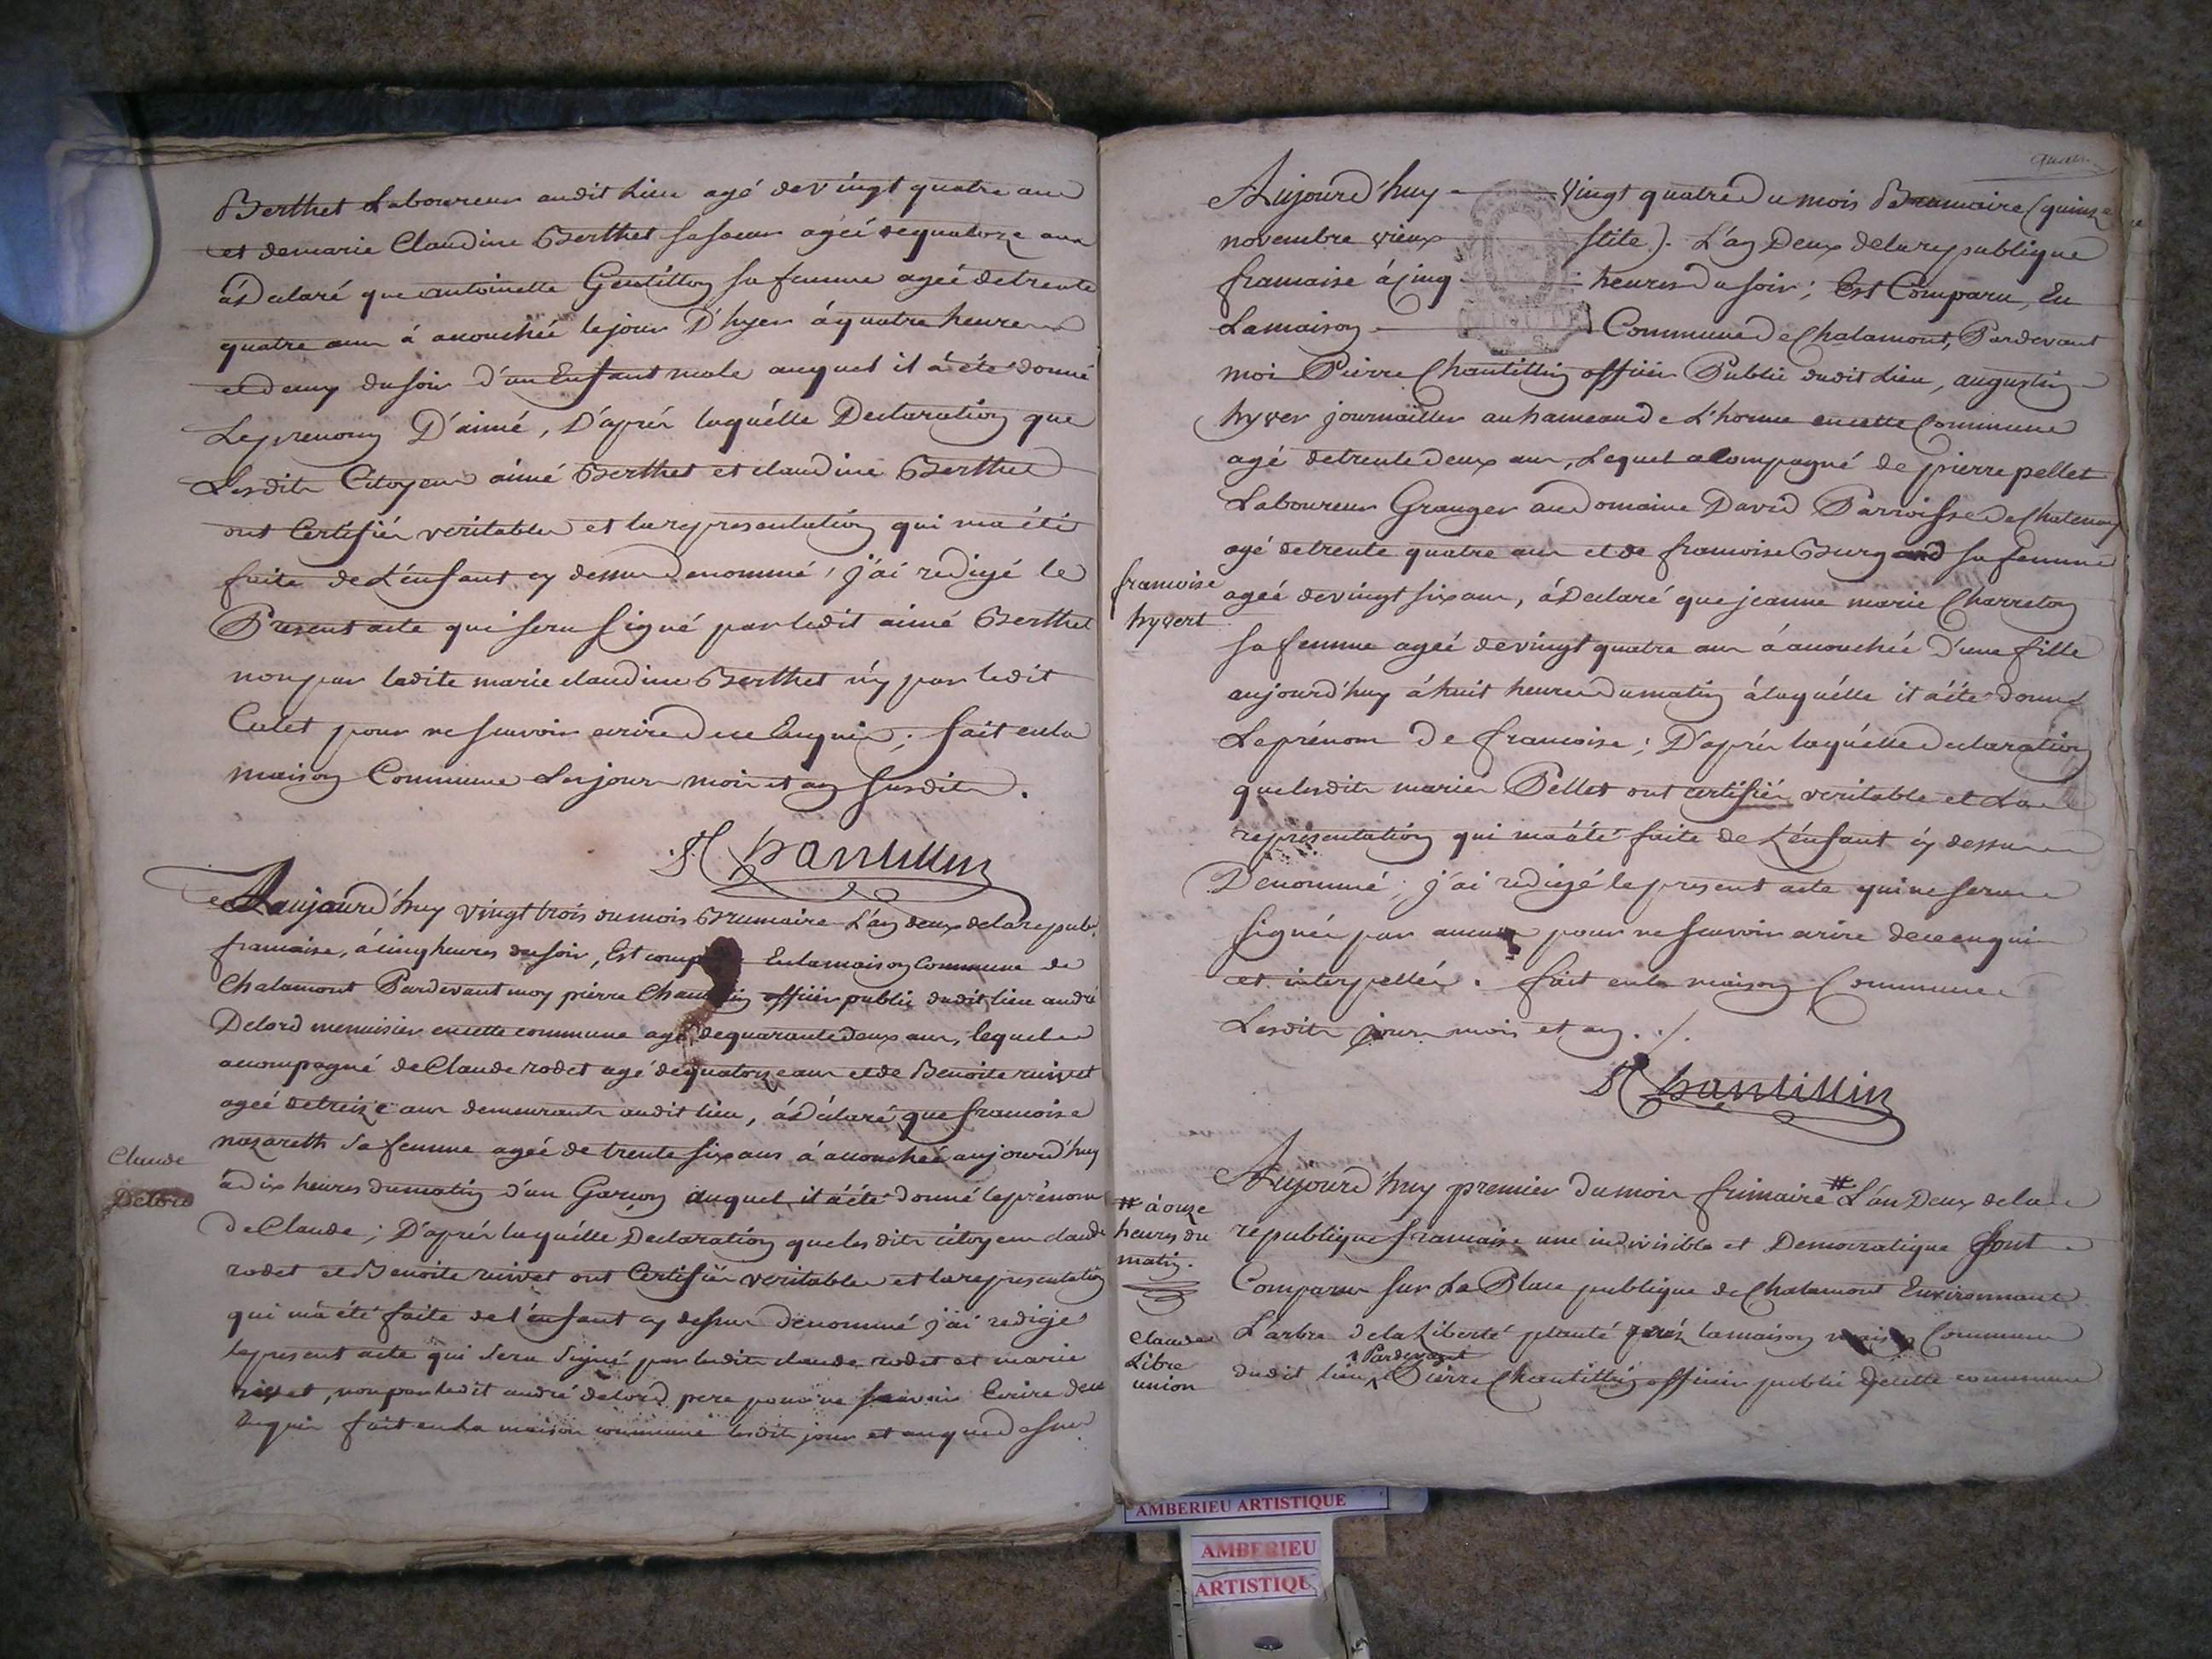 Berthet Laboureur audit Lieu agé de vingt quatre ans
et de marie Claudine Berthet sa soeur agéé de quatorze ans
à Déclaré que antoinette Gentillon sa femme agéé de trente
quatre ans à accouchéé le jour D'hyer à quatre heures
et demy du soir d'un Enfant male auquel il à été donné
Le prenom D'aimé, D'après laquélle Declaration que
Lesdits Citoyens aimé Berthet et claudine Berthet
ont Certifiés veritables et la représentation qui ma été
faite de L'énfant cy dessus denommé, j'ai redigé le
Present acte qui sera signé par ledit aimé Berthet
non par ladite marie claudine Berthet n'y par ledit
Culet pour ne scavoir ecrire de ce Enquis; fait en la
maison Commune Les jour mois et an susdits.
P Chantillin
Aujourd'huy vingt trois du mois Brumaire L'an deux de la repub.
francaise, à cinq heures du soir, Est En la maison Commune de
Chalamont Pardevant moy pierre officier public dudit lieu andré
Delord menuisier en cette commune agé de quarante deux ans, lequel
accompagné de Claude rodet agé de quatorze ans et de Benoite ruivet
agéé de treize ans demeurants audit lieu, à Déclaré que francoise
nazareth sa femme agéé de trente six ans à accouchéé aujourd'huy
Claude
Delord
à dix heures du matin d'un Garçon auquel il à été donné le prénom
de Claude; D'après laquélle Declaration que lesdits citoyens claude
rodet et Benoite ruivet ont Certifiés veritables et la representation
qui m'à été faite de l'énfant cy dessus denommé j'ai redigé
le present acte qui sera signé par lesdits claude rodet et marie
non par ledit andré delord pere pour ne scavoir Ecrire de ce
Enquis fait en La maison commune lesdits jour et an que dessus
Aujourd'huy vingt quatre du mois Brumaire (quinze
novembre vieux stile). L'an Deux de la republique
francaise à cinq heures du soir; Est Comparu, En
La maison Commune de Chalamont, Pardevant
moi Pierre Chantillin officier Public dudit Lieu, augustin
hyver journailler au hameau de L'horme en cette Commune
agé de trente deux ans, Lequel acompagné de pierre pellet
Laboureur Granger au Domaine David Parroisse de Chatenay
agé de trente quatre ans et de francoise Burgand sa femme
francoise
hyvert
agéé de vingt six ans, à Declaré que jeanne marie Charreton
sa femme agéé de vingt quatre ans à accouchéé d'une fille
aujourd'huy à huit heures du matin à laquélle il à été donné
Le prénom De francoise; D'après laquélle declaration
que lesdits mariés Pellet ont certifiés veritable et La
representation qui m'a été faite de L'énfant cy dessus
Denommé; j'ai redigé le present acte qui ne sera
signéé par aucun pour ne scavoir ecrire de ce enquis
et interpellés. fait en la maison Commune
Lesdits jour mois et an ./.
P Chantillin
Aujourd'huy premier du mois frimaire # L'an Deux de la
# à onze
heures du
matin.
republique francaise une indivisible et Democratique Sont
Comparus sur La Place publique de Chalamont Environnant
Claude
Libre
union
L'arbre de la Liberté planté prés la maison Commune
dudit lieu, Pardevant Pierre Chantillin officier public de cette commune